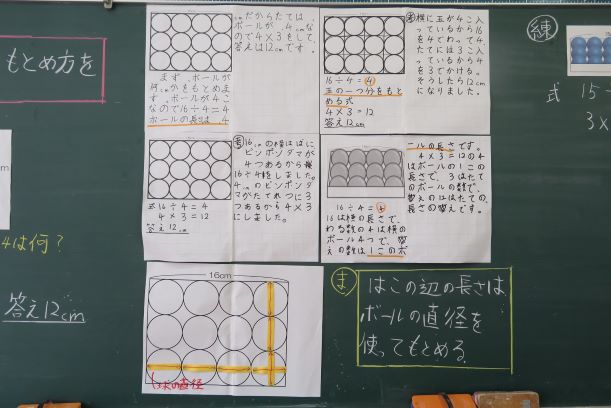 もとめ方を
4は何？
答え12cm
まず、ボールが
何cmかをもとめま
す。ボールが4こ
なので16÷4=4
ボールの長さは、4
cmだからたては
ボールが4cmな
ので4×3をして、
答えは12cmです。
横に玉が4こ入
っているから16
を4でわって4
たてには3こ入
っているから4
を3でかける。
そうしたら12cm
になりました。
16÷4=④
玉の一つ分をもと
める式
4×3=12
答え12cm
16cmの横はばに
ピンポンダマが
4つあるから横
16÷4をしました。
4cmのピンポンダ
マがたてれつに3
つあるから4×3
にしました。
式16÷4=4
4×3=12
答え12cm
16÷4=④
16は横の長さで、
わる数の4は横の
ボール4つで、答
えの数は1このボ
ールの長さです。
4×3=12の4
はボールの1この
長さで、3はたて
のボールの数で、
答えの12はたての
長さの答えです。
16cm
の直径
ま
はこの辺の長さは、
ボールの直径を
使ってもとめる。
練
式 15
3×